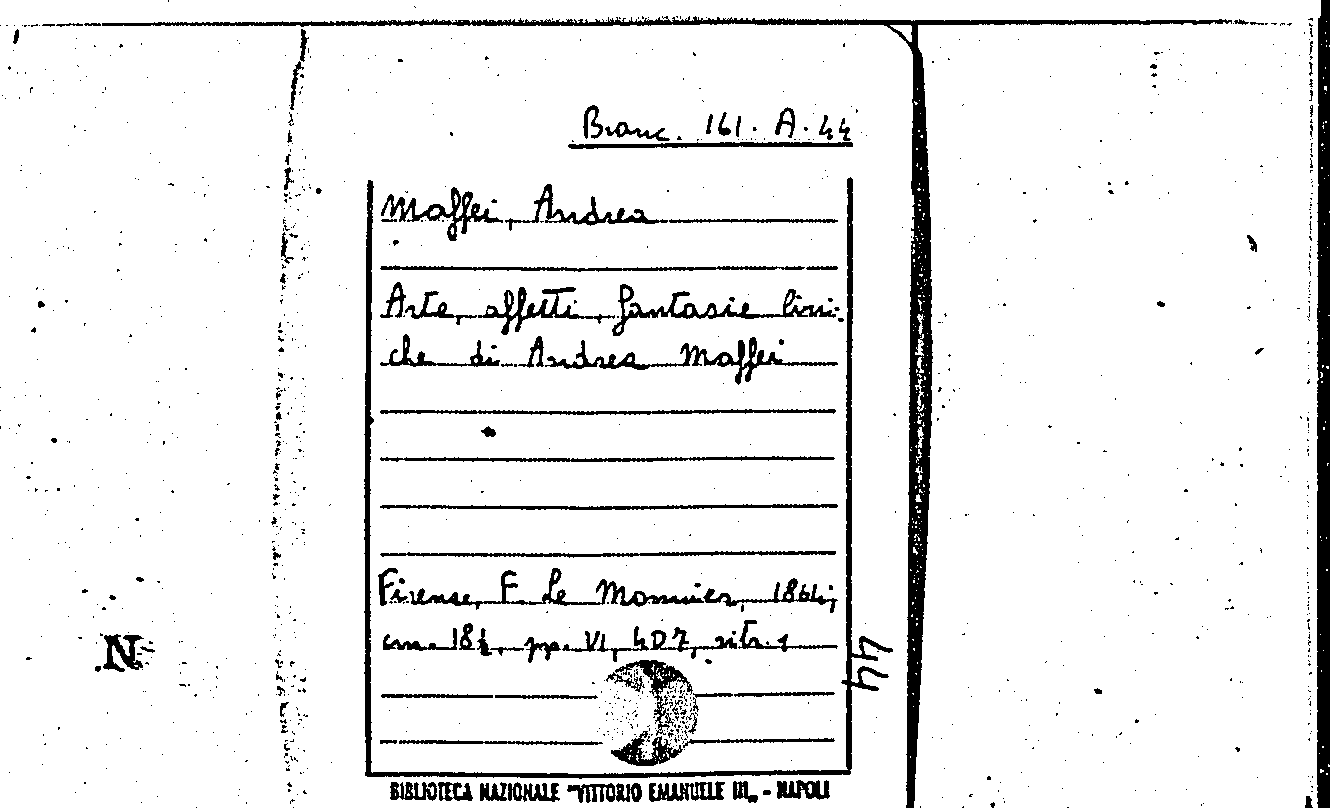 Branc. 161. A. 44
Maffei, Andrea
Arte, affetti, fantasie liri:
che di Andrea Maffei
Firenze, F. Le Monnier, 1864;
cm. 18½, pp. VI, 407, ritr. 1
44
N
BIBLIOTECA NAZIONALE "VITTORIO EMANUELE III„ - NAPOLI